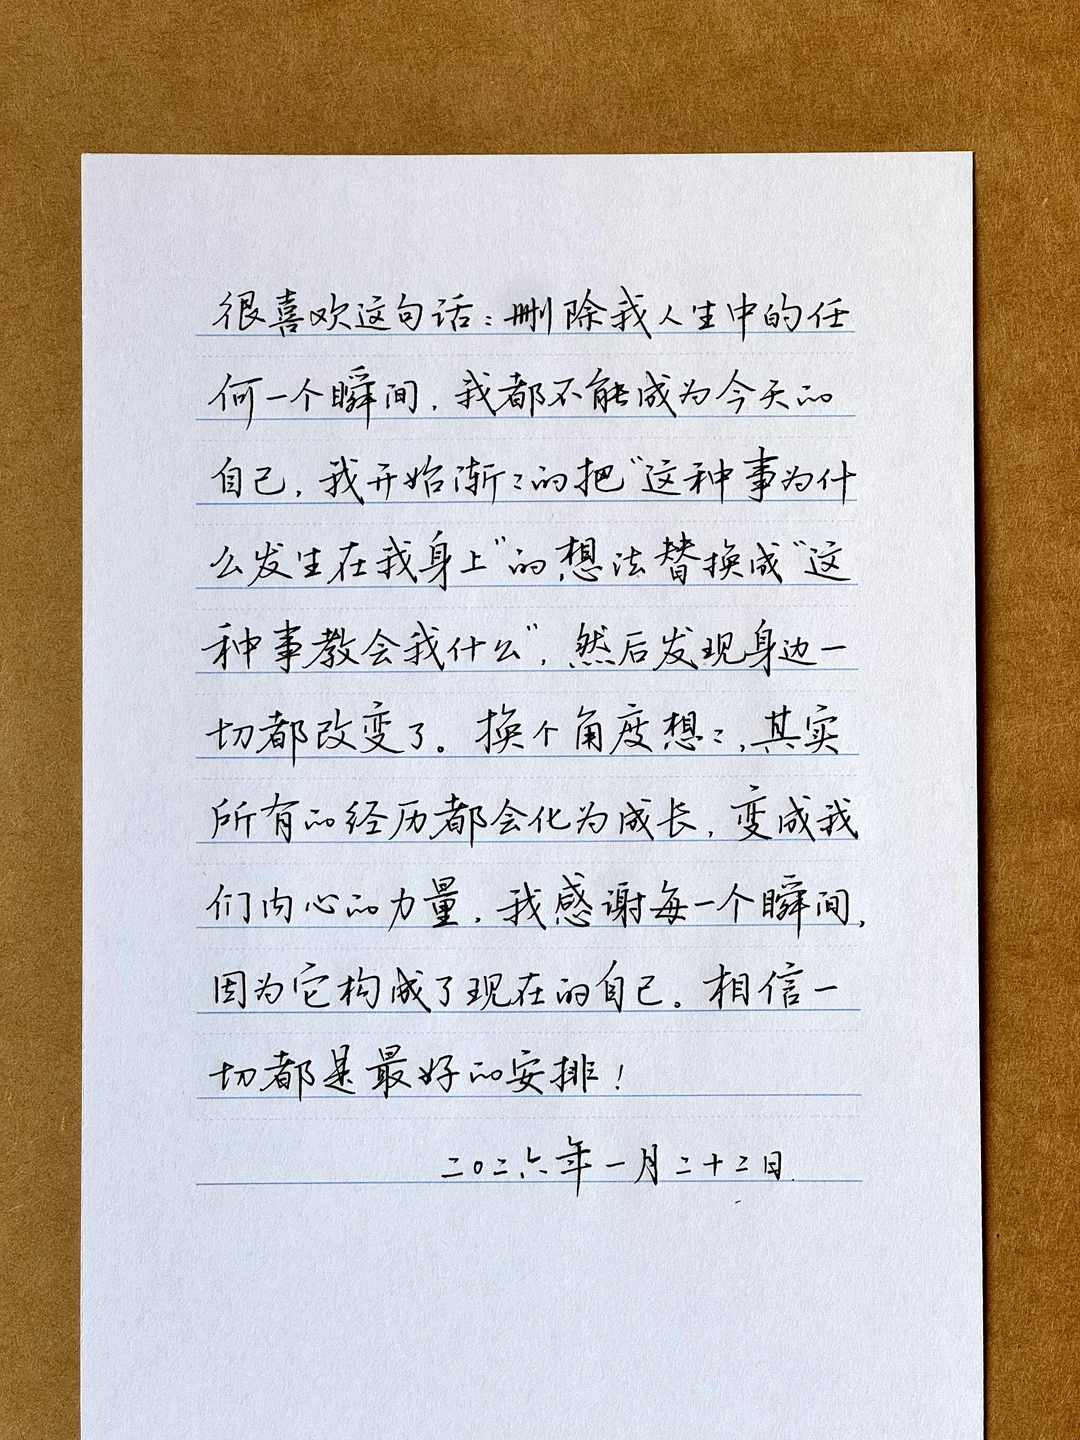 很喜欢这句话：删除我人生中的任
何一个瞬间，我都不能成为今天的
自己，我开始渐々的把“这种事为什
么发生在我身上”的想法替换成“这
种事教会我什么”，然后发现身边一
切都改变了。换个角度想々，其实
所有的经历都会化为成长，变成我
们内心的力量，我感谢每一个瞬间，
因为它构成了现在的自己。相信一
切都是最好的安排！
二〇二六年一月二十二日